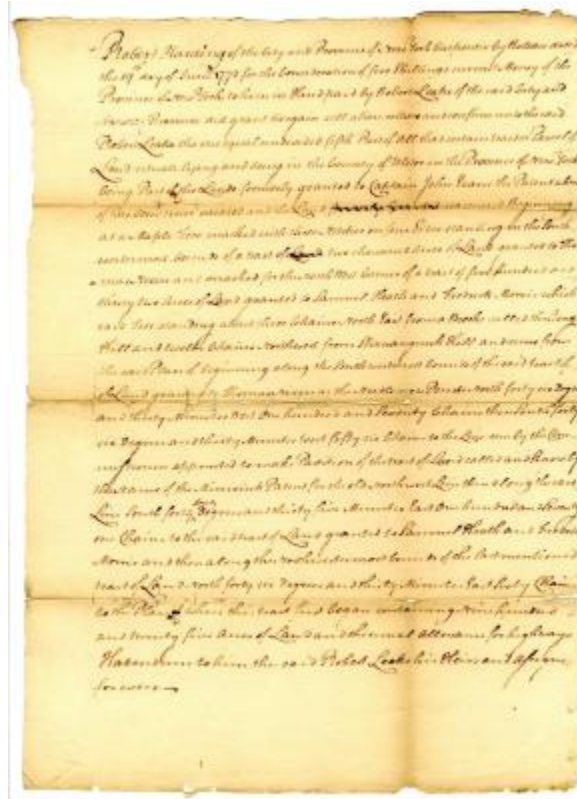 Robert Harding of the City and Province of New York by date
the 19th day of June 1773 for the Consideration of five Shillings current Money of the
Province of New York to him in Hand paid by Robert Leake of the said City and
Province did grant bargain sell alien release and confirm unto the said
Robert Leake the one equal undivided fifth Part of All that certain Tract or Parcel of
Land situate lying and being in the County of Ulster in the Province of New York
being Part of the Lands formerly granted to Captain John Evans the Patent
of and the Land Beginning
at an Tree marked with three Notches on four Sides standing in the South
bounds of a tract of Land two thousand Acres of Land granted to
and marked for the North West Corner of a tract of five hundred and
thirty two Acres of Land granted to Samuel Heath and Morris which
said Tree standing about three Chains North East from a Brook called the
Kill and twelve Chains from Shawangunk Kill and runs from
the said Place of Beginning along the bounds of the said tract of
Land granted to North forty six Degrees
and thirty Minutes West One hundred and Seventy Chains then South forty
six Degrees and thirty Minutes West fifty six Chains to the Line run by the
appointed to make Partition of the tract of Land called and known by
the name of the Minisink Patent for the old North West Line then along the said
Line South forty Degrees and thirty five Minutes East One hundred and Seventy
one Chains to the said tract of Land granted to Samuel Heath and
Morris and then along the bounds of the last mentioned
tract of Land North forty six Degrees and thirty Minutes East Chains
to the Place where this tract first began containing Nine hundred
and twenty five Acres of Land and the usual allowance for highways
Habendum to him the said Robert Leake his Heirs and Assigns
forever